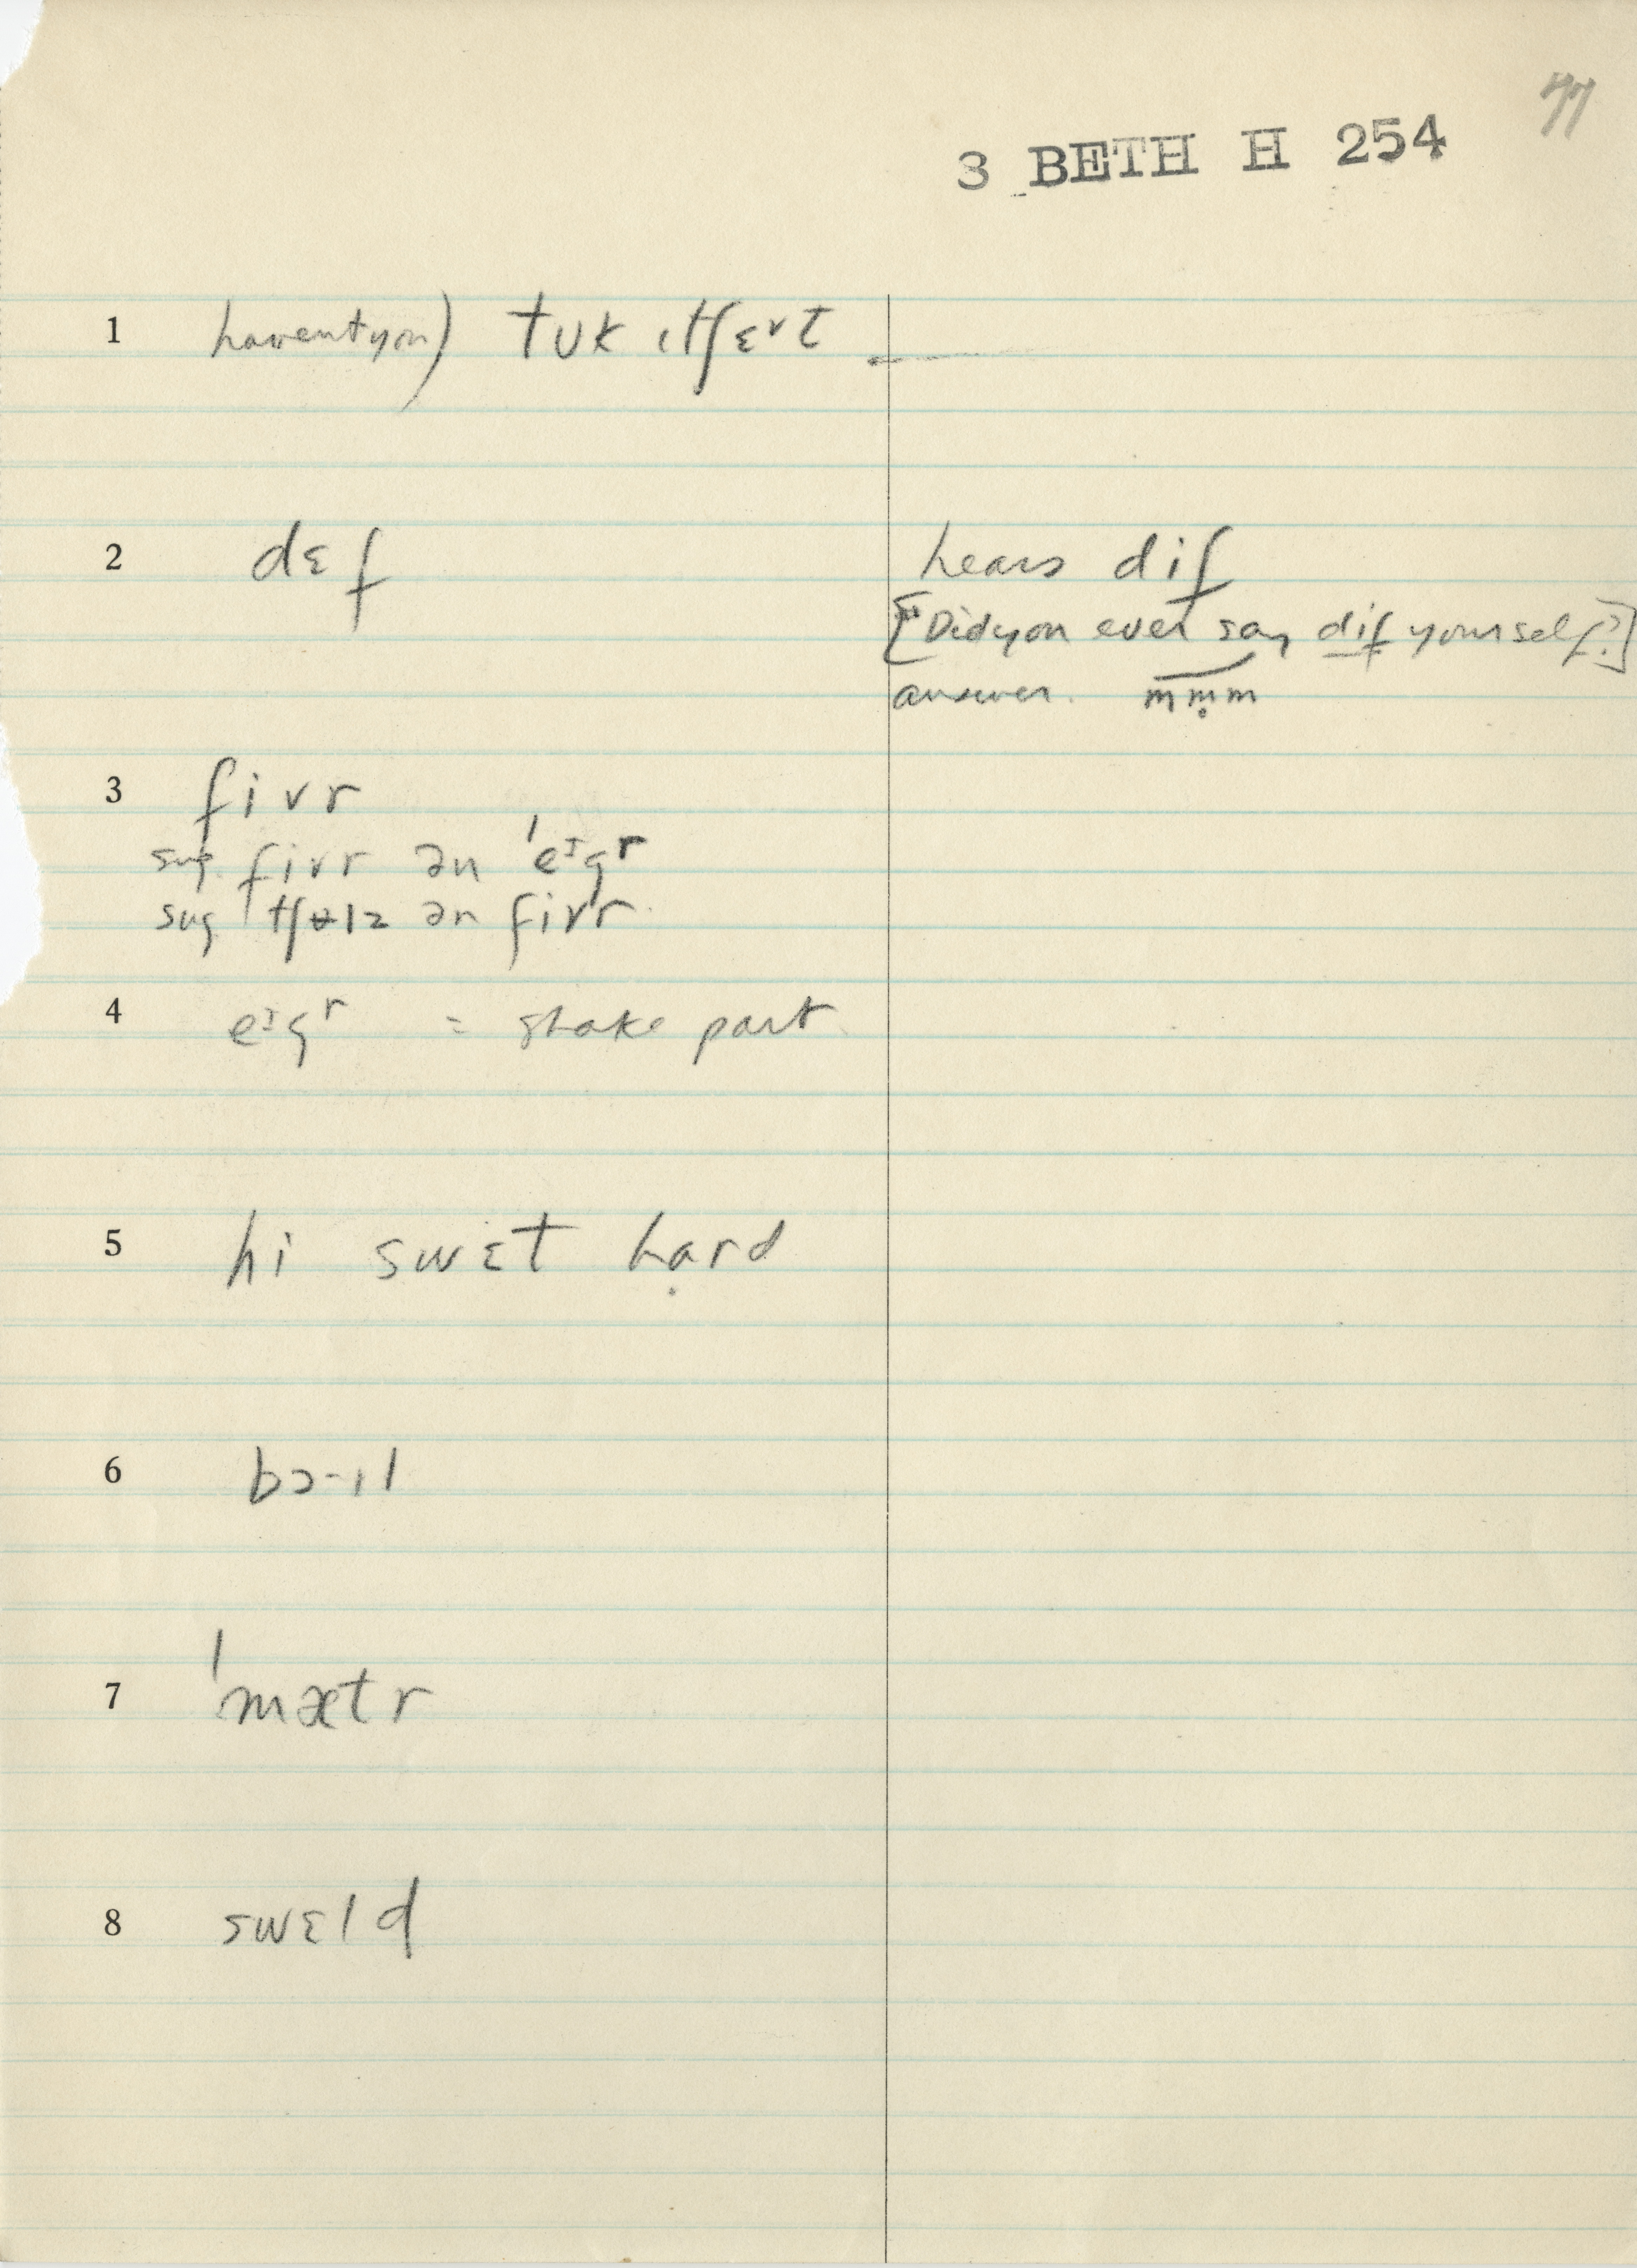 77
3 BETH H 254
1 haventyou) tʊk ɪtʃɛvt
2 dɛf
hears dif
["Did you ever say dif yourself?]
answer. mṃm
3 fivr
sug. fivr ən 'eᶦgʳ
sug tʃɪlz ən fivr.
4 eᶦgʳ = shake part
5 hi swɛt hạrd
6 bɔ-ɪl
7 'mætr
8 swɛld